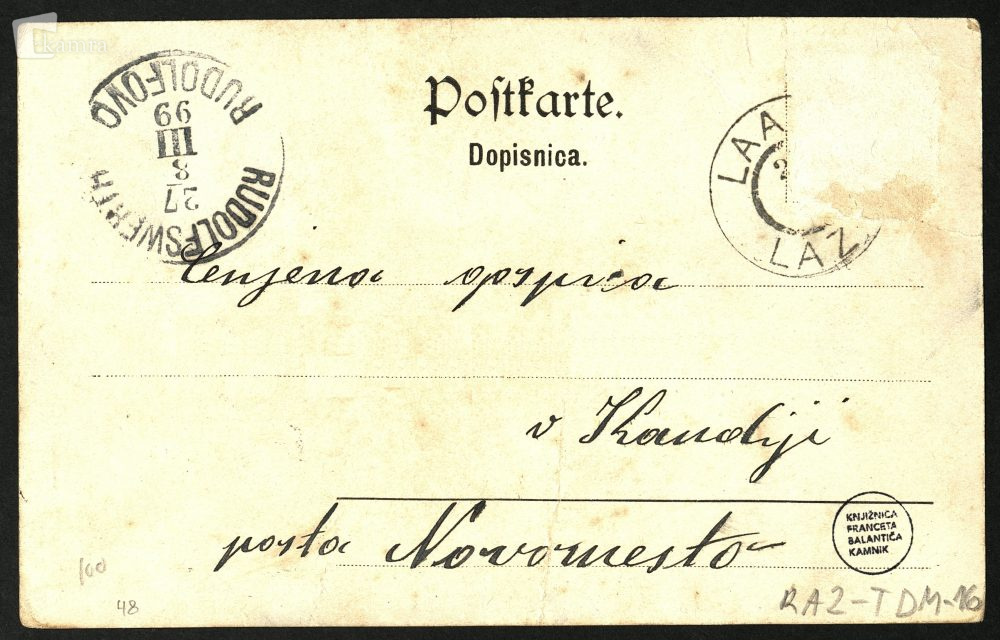 kamra
RUDOLFOVO
99
III
8
27
RUDOLFSWERTH
Postkarte.
Dopisnica.
LAA
2
LAZ
Cenjena gospica
v Kandiji
posta Novomesto
KNJIŽNICA
FRANCETA
BALANTIČA
KAMNIK
100
48
RAZ-TDM-16